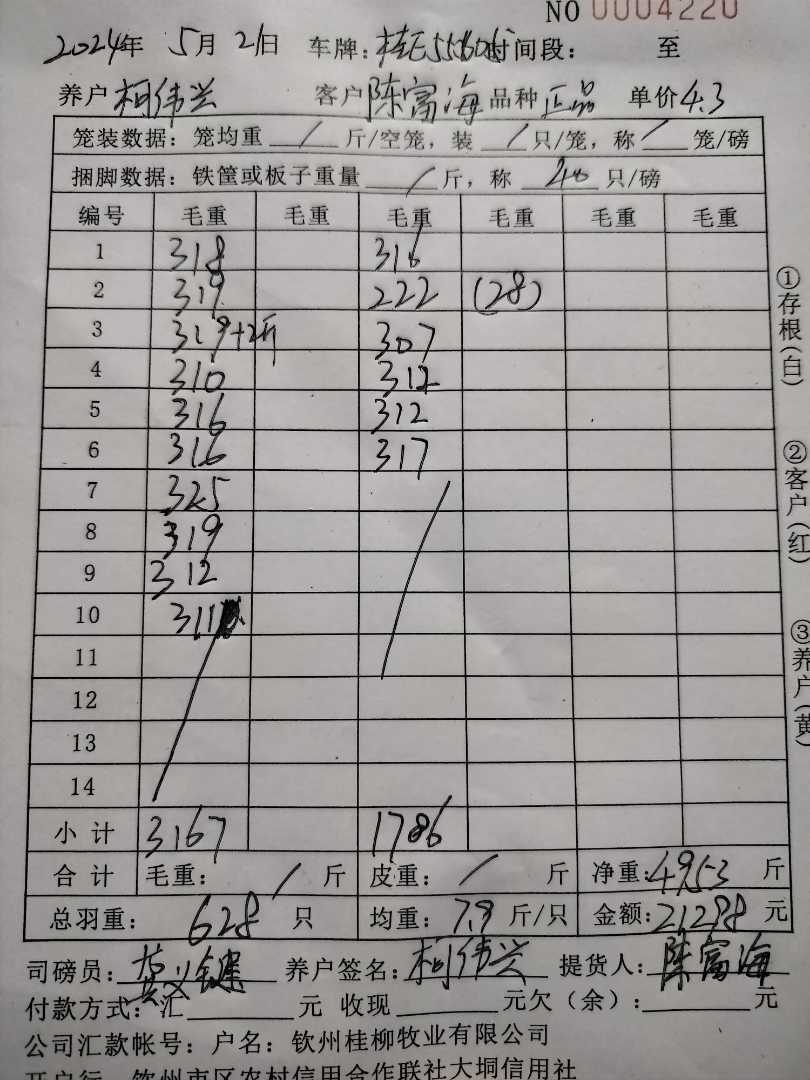 NO 0004220
2024年 5月21日 车牌: 时间段: 至
养户 柯伟兴 客户 陈富海 品种 正品 单价 4.3
笼装数据: 笼均重 / 斤/空笼, 装 / 只/笼, 称 / 笼/磅
捆脚数据: 铁筐或板子重量 / 斤, 称 40 只/磅
编号 毛重 毛重 毛重 毛重 毛重 毛重
1 318 316
2 319 222 (28)
3 319+2斤 307
4 310 312
5 316 312
6 316 317
7 325
8 319
9 312
10 311
11
12
13
14
小计 3167 1786
合计 毛重: / 斤 皮重: / 斤 净重: 4953 斤
总羽重: 628 只 均重: 7.9 斤/只 金额: 21298 元
司磅员: 养户签名: 柯伟兴 提货人: 陈富海
付款方式: 汇 元 收现 元欠(余): 元
公司汇款帐号: 户名: 钦州桂柳牧业有限公司
开户行 钦州市区农村信用合作联社大垌信用社
①存根(白)
②客户(红)
③养户(黄)